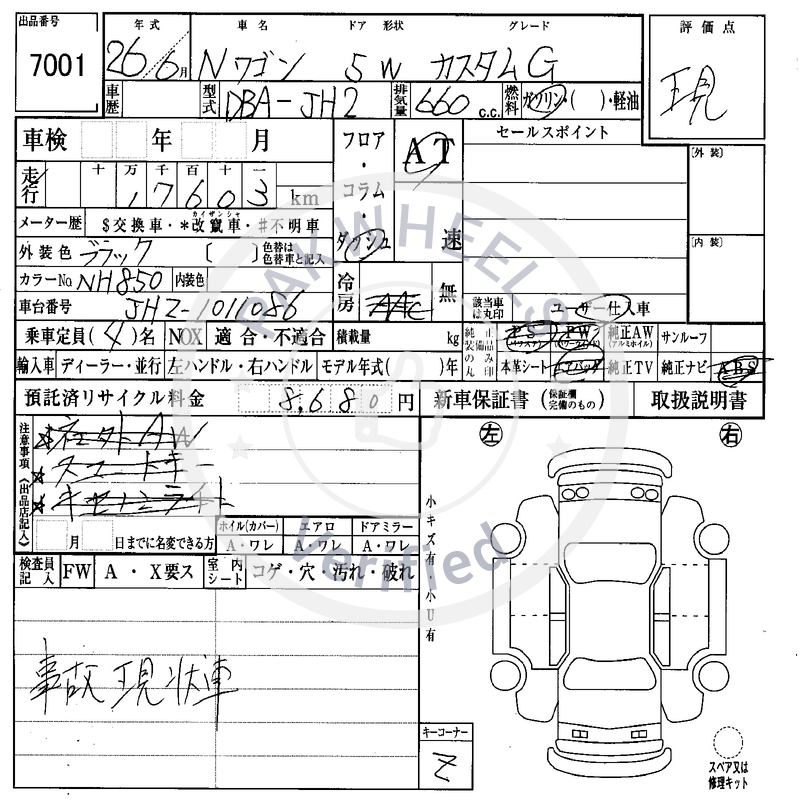 出品番号 年式 車名 ドア 形状 グレード 評価点
7001 26/6月 Nワゴン 5 W カスタム G 現
車歴 型式 DBA-JH2 排気量 660 c.c. 燃料 ガソリン・( )・軽油
車検 年 月 フロア・コラム・ダッシュ AT 速 セールスポイント [外装]
走行 十万千百十一
17603 km
メーター歴 $交換車・*改竄車・#不明車
カイザンシャ
外装色 ブラック ( ) 色替は色替車と記入 [内装]
カラーNo NH850 内装色 冷房 AAC 無
車台番号 JH2-1011086 該当車は丸印 ユーザー仕入車
乗車定員(4)名 NOX 適合・不適合 積載量 kg 純正装備品のみ丸印 PS(パワステ) PW(パワーウインド) 純正AW(アルミホイル) サンルーフ
輸入車 ディーラー・並行 左ハンドル・右ハンドル モデル年式( )年 本革シート エアバッグ 純正TV 純正ナビ ABS
預託済リサイクル料金 8,680円 新車保証書(保証欄完備のもの) 取扱説明書
注意事項(出品店記入) 左 右
スマートキー
月 日までに名変できる方 ホイル(カバー) エアロ ドアミラー
A・ワレ A・ワレ A・ワレ
検査員記入 FW A・X要ス 室内シート コゲ・穴・汚れ・破れ
小キズ有・小U有
事故現状車
キーコーナー
Z
スペア又は
修理キット
PAKWHEELS
Verified